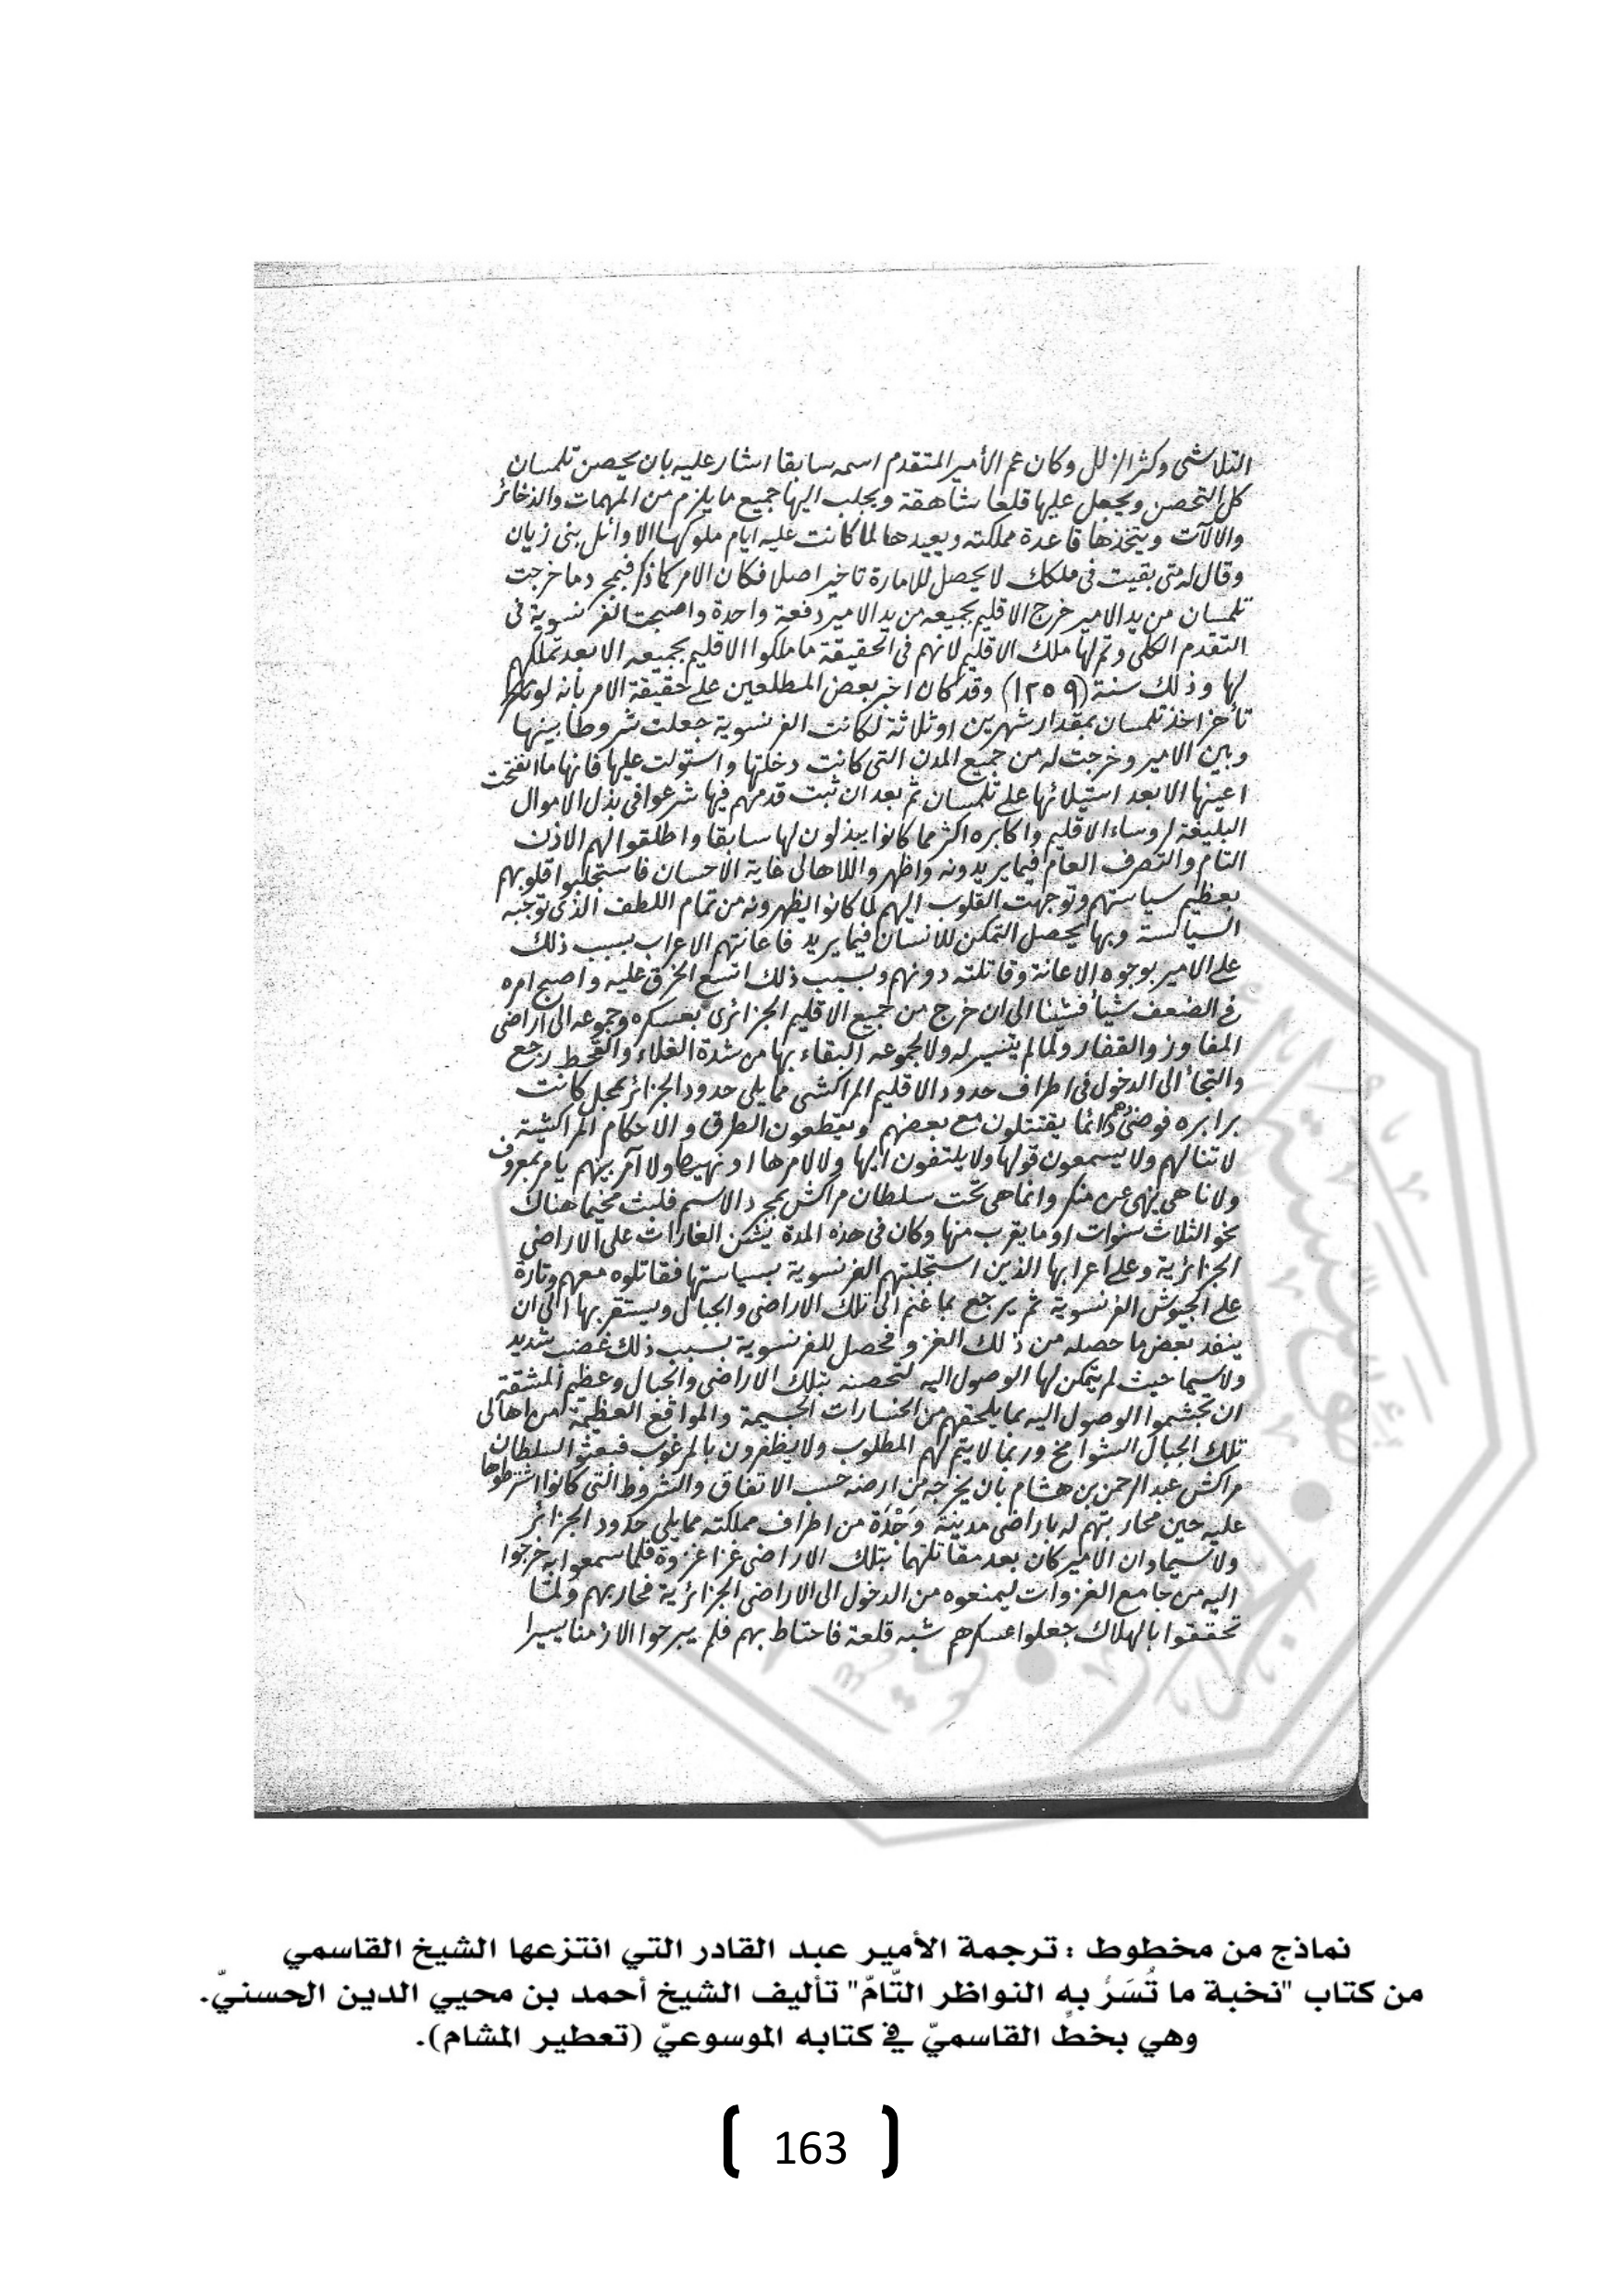 التلاشى وكثر الزلل وكان عم الأمير المتقدم اسمه سابقا اشار عليه بان يحصن تلمسان
كل التحصن ويجعل عليها قلعا شاهقة ويجلب اليها جميع ما يلزم من المهمات والذخائر
والآلات ويتخذها قاعدة مملكته ويعيدها لما كانت عليه ايام ملوكها الاوائل بنى زيان
وقال له متى بقيت فى ملكك لا يحصل للامارة تاخير اصلا فكان الامر كما ذكر فبمجرد ما خرجت
تلمسان من يد الامير خرج الاقليم بجميعه من يد الامير دفعة واحدة واصبحت الفرنسوية فى
التقدم الكلى وتم لها ملك الاقليم لانهم فى الحقيقة ما ملكوا الاقليم بجميعه الا بعد تملكهم
لها وذلك سنة (١٢٥٩) وقد كان اخبر بعض المطلعين على حقيقة الامر بأنه لو
تأخر اخذ تلمسان بمقدار شهرين او ثلاثة لكانت الفرنسوية جعلت شروطا بينها
وبين الامير وخرجت له من جميع المدن التى كانت دخلتها واستولت عليها فانها ما انفتحت
اعينها الا بعد استيلائها على تلمسان ثم بعد ان ثبت قدمهم فيها شرعوا فى بذل الاموال
البليغة لروساء الاقليم واكابره اكثر مما كانوا يبذلون لها سابقا واطلقوا لهم الاذن
التام والتصرف العام فيما يريدونه واظهروا للاهالى غاية الاحسان فاستجلبوا قلوبهم
بعظيم سياستهم وتوجهت القلوب اليهم لما كانوا يظهرونه من تمام اللطف الذى توجبه
السياسة وبها يحصل التمكن للانسان فيما يريد فاعانتهم الاعراب بسبب ذلك
على الامير بوجوه الاعانة وقاتلته دونهم وبسبب ذلك اتسع الخرق عليه واصبح امره
فى الضعف شيأ فشيئا الى ان خرج من جميع الاقليم الجزائرى بعسكره وجموعه الى اراضى
المفاوز والقفار ولما لم يتيسر له ولا لجموعه البقاء بها من شدة الغلاء والقحط رجع
والتجأ الى الدخول فى اطراف حدود الاقليم المراكشى مما يلى حدود الجزائر بمحل كانت
برابره فوضى دائما يقتتلون مع بعضهم ويقطعون الطرق والاحكام المراكشية
لا تنالهم ولا يسمعون قولها ولا يلتفون اليها ولا لامرها او نهيها ولا آمر بينهم يامر بمعروف
ولا ناهى ينهى عن منكر وانما هى تحت سلطان مراكش بمجرد الاسم فلبث مخيما هناك
نحو الثلاث سنوات او ما يقرب منها وكان فى هذه المدة يشن الغارات على الاراضى
الجزائرية وعلى اعرابها الذين استجلبتهم الفرنسوية بسياستها فقاتلوه معهم وتارة
على الجيوش الفرنسوية ثم يرجع بما غنم الى تلك الاراضى والجبال ويستقر بها الى ان
ينفد بعض ما حصله من ذلك الغزو فحصل للفرنسوية بسبب ذلك غضب شديد
ولا سيما حيث لم يتمكن لها الوصول اليه لتحصنه بتلك الاراضى والجبال وعظيم المشقة
ان تجشموا الوصول اليه بما يلحقهم من الخسارات الجسيمة والمواقع العظيمة من اهالى
تلك الجبال الشوامخ وربما لا يتم لهم المطلوب ولا يظفرون بالمرغوب فبعثوا لسلطان
مراكش عبد الرحمن بن هشام بان يخرجه من ارضه حسب الاتفاق والشروط التى كانوا اشترطوها
عليه حين محاربتهم له باراضى مدينة وَجْدَة من اطراف مملكته مما يلى حدود الجزائر
ولا سيما وان الامير كان بعد مقاتلتهما بتلك الاراضى غزا غزوة فلما سمعوا به خرجوا
اليه من جامع الغزوات ليمنعوه من الدخول الى الاراضى الجزائرية فحاربهم ولما
تحققوا بالهلاك جعلوا عسكرهم شبه قلعة فاحتاط بهم فلم يبرحوا الا زمنا يسيرا
نماذج من مخطوط : ترجمة الأمير عبد القادر التي انتزعها الشيخ القاسمي
من كتاب "نخبة ما تُسَرُ به النواظر التّامّ" تأليف الشيخ أحمد بن محيي الدين الحسنيّ.
وهي بخطّ القاسميّ في كتابه الموسوعيّ (تعطير المشام).
163